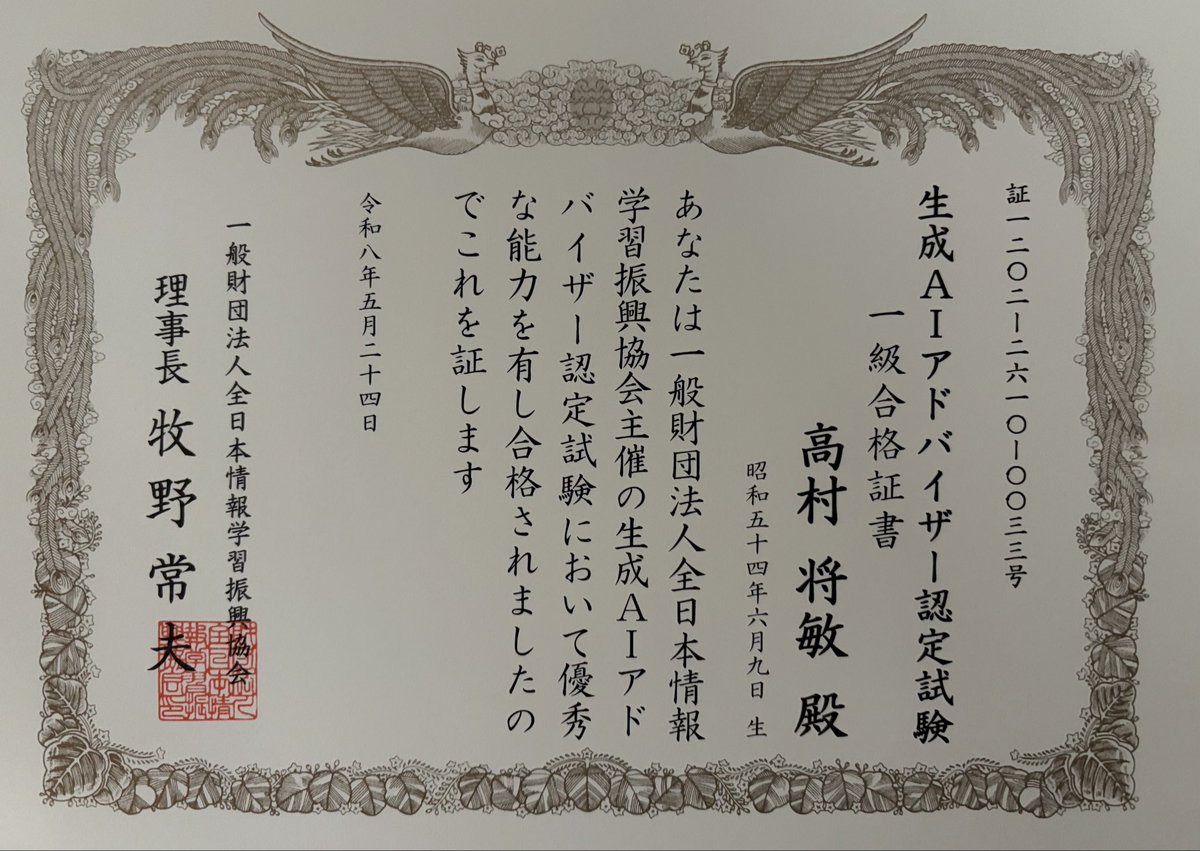 証一二〇二ー二六一〇ー〇〇三三号
生成ＡＩアドバイザー認定試験
一級合格証書
高村 将敏 殿
昭和五十四年六月九日 生
あなたは一般財団法人全日本情報
学習振興協会主催の生成ＡＩアド
バイザー認定試験において優秀
な能力を有し合格されましたの
でこれを証します
令和八年五月二十四日
一般財団法人全日本情報学習振興協会
理事長 牧野常夫